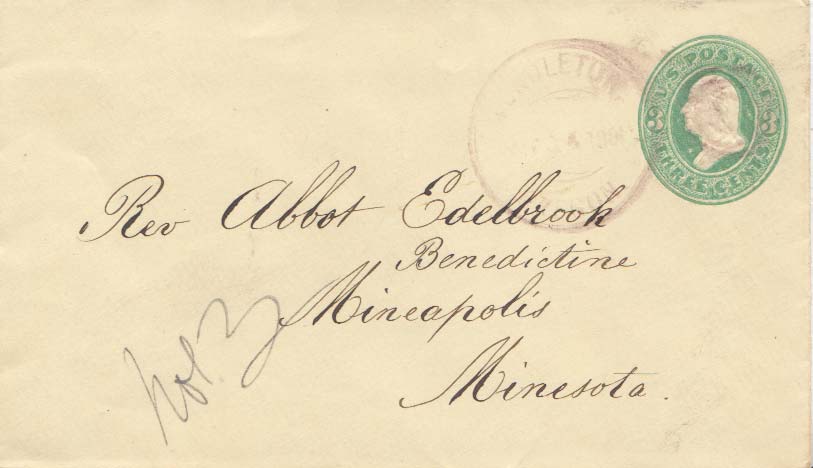 U.S. POSTAGE
3 3
THREE CENTS
Rev Abbot Edelbrook
Benedictine
Mineapolis
Minesota.